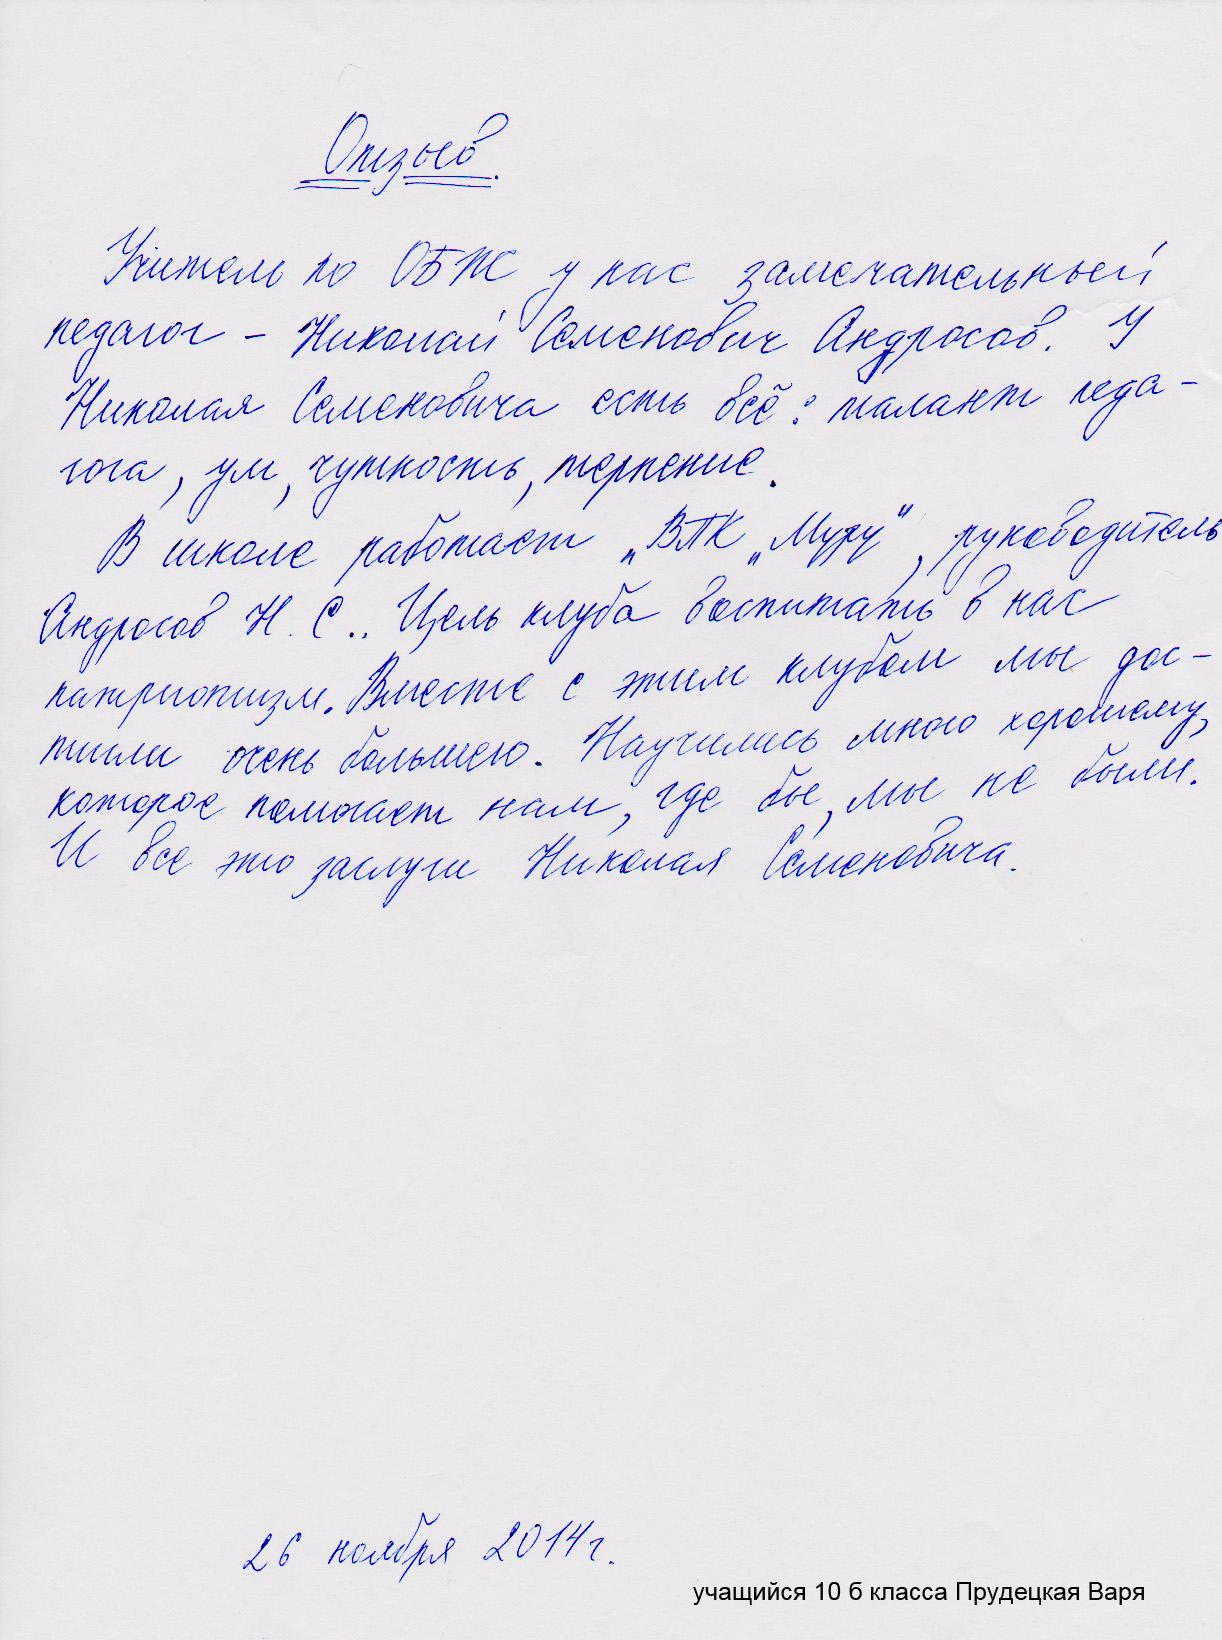 Отзыв.
Учитель по ОБЖ у нас замечательный
педагог - Николай Семенович Андросов. У
Николая Семеновича есть всё: талант педа-
гога, ум, чуткость, терпение.
В школе работает „ВПК „Муру“, руководитель
Андросов Н. С.. Цель клуба воспитать в нас
патриотизм. Вместе с этим клубом мы дос-
тигли очень большего. Научились много хорошему,
которое помогает нам, где бы, мы не были.
И все это заслуги Николая Семеновича.
26 ноября 2014г.
учащийся 10 б класса Прудецкая Варя